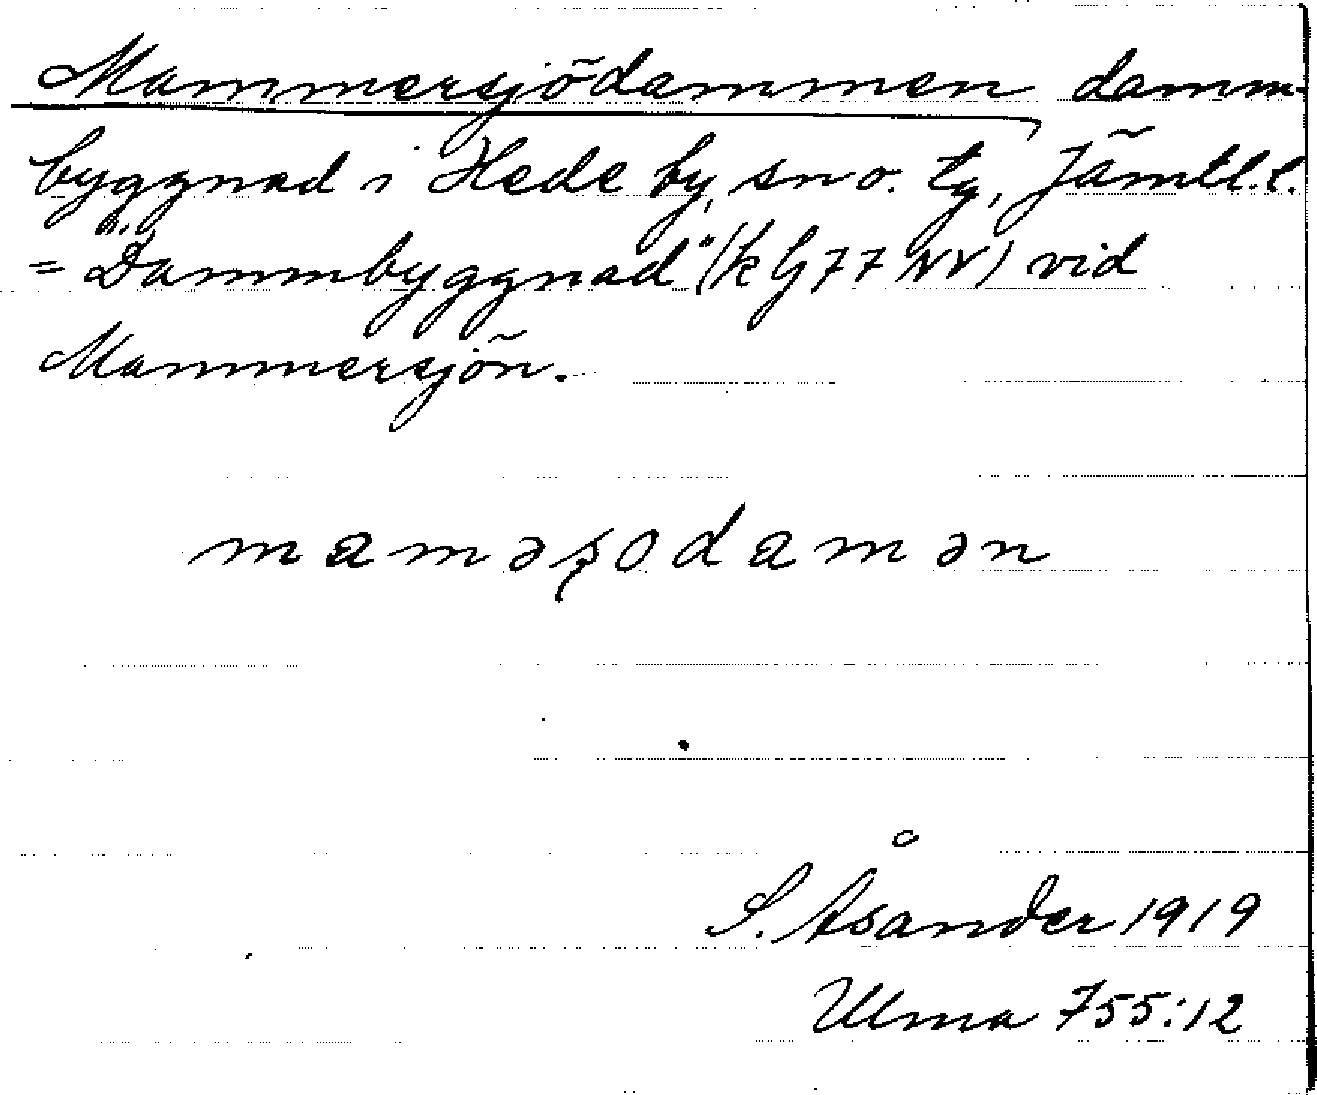 Mammersjödammen damm-
byggnad i Hede by, sn o. tg, Jämtl. l.
= "Dammbyggnad" (k G 77 NV) vid
Mammersjön.
maməʂodamən
S. Åsander 1919
Ulma 755:12